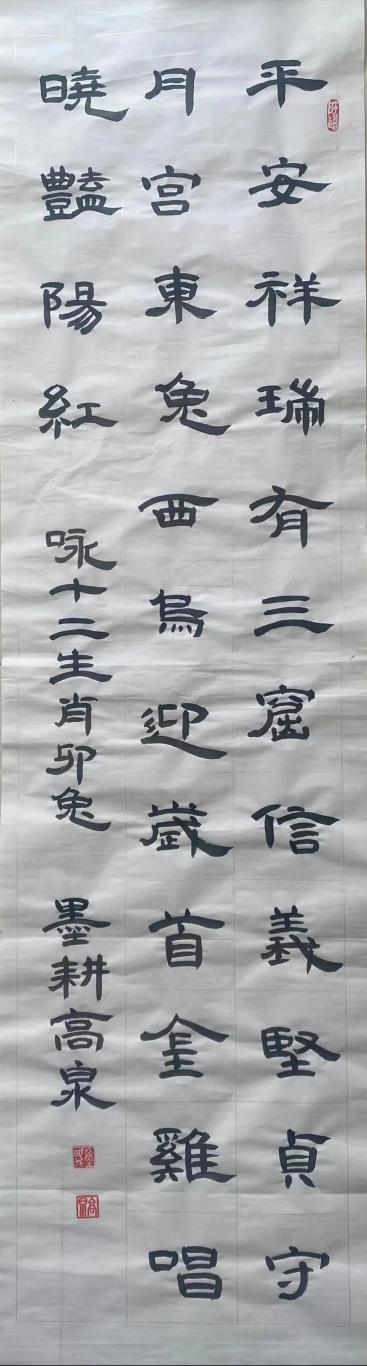 平安祥瑞有三窟信義堅貞守
月宮東兔西烏迎歲首金雞唱
曉豔陽紅
咏十二生肖卯兔
墨耕高泉